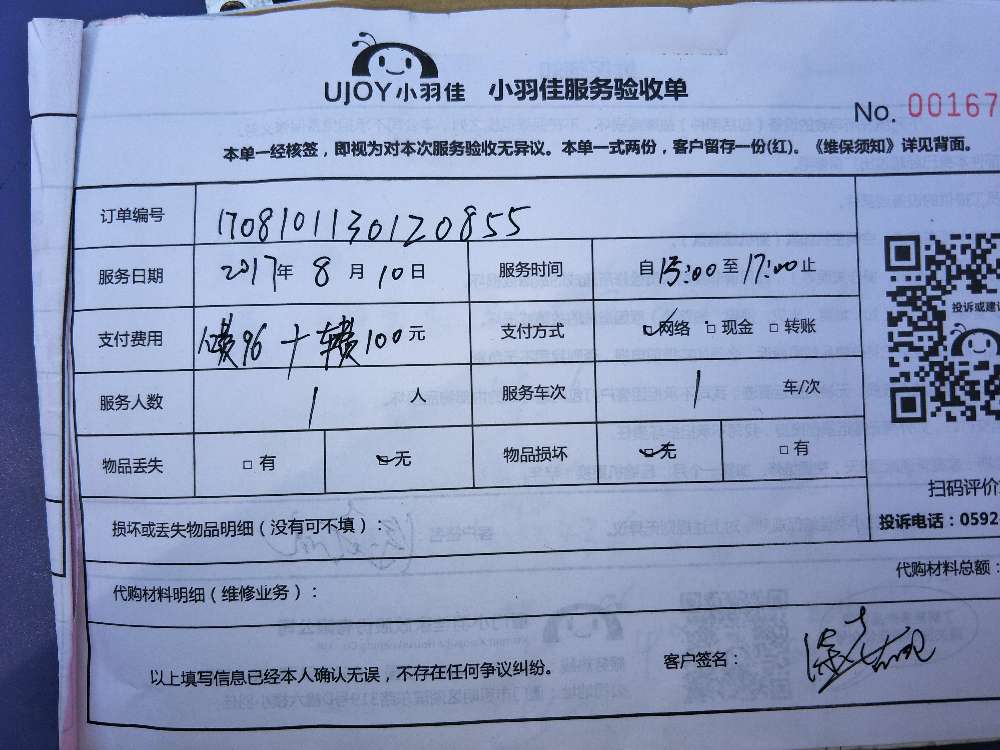 UJOY小羽佳 小羽佳服务验收单
No. 00167
本单一经核签，即视为对本次服务验收无异议。本单一式两份，客户留存一份(红)。《维保须知》详见背面。
订单编号 1708101130120855
服务日期 2017年 8 月 10 日 服务时间 自15:00至17:00止
支付费用 96 + 车费100元 支付方式 网络 □ 现金 □ 转账
服务人数 1 人 服务车次 1 车/次
物品丢失 □ 有 无 物品损坏 无 □ 有
投诉或建议
扫码评价
投诉电话：0592
损坏或丢失物品明细（没有可不填）：
代购材料明细（维修业务）：
代购材料总额：
以上填写信息已经本人确认无误，不存在任何争议纠纷。
客户签名：